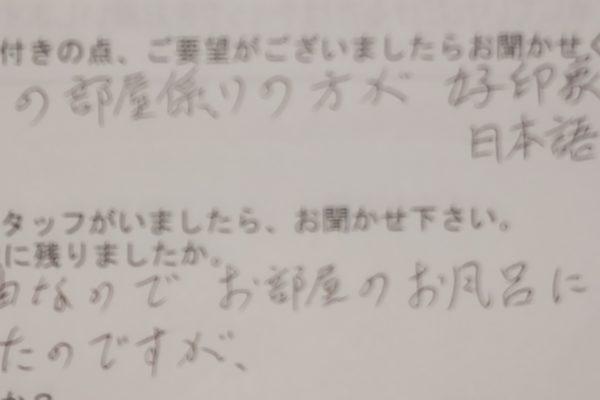 付きの点、ご要望がございましたらお聞かせく
の部屋係りの方が 好印象
日本語
タッフがいましたら、お聞かせ下さい。
に残りましたか。
なので お部屋のお風呂に
たのですが、
か?